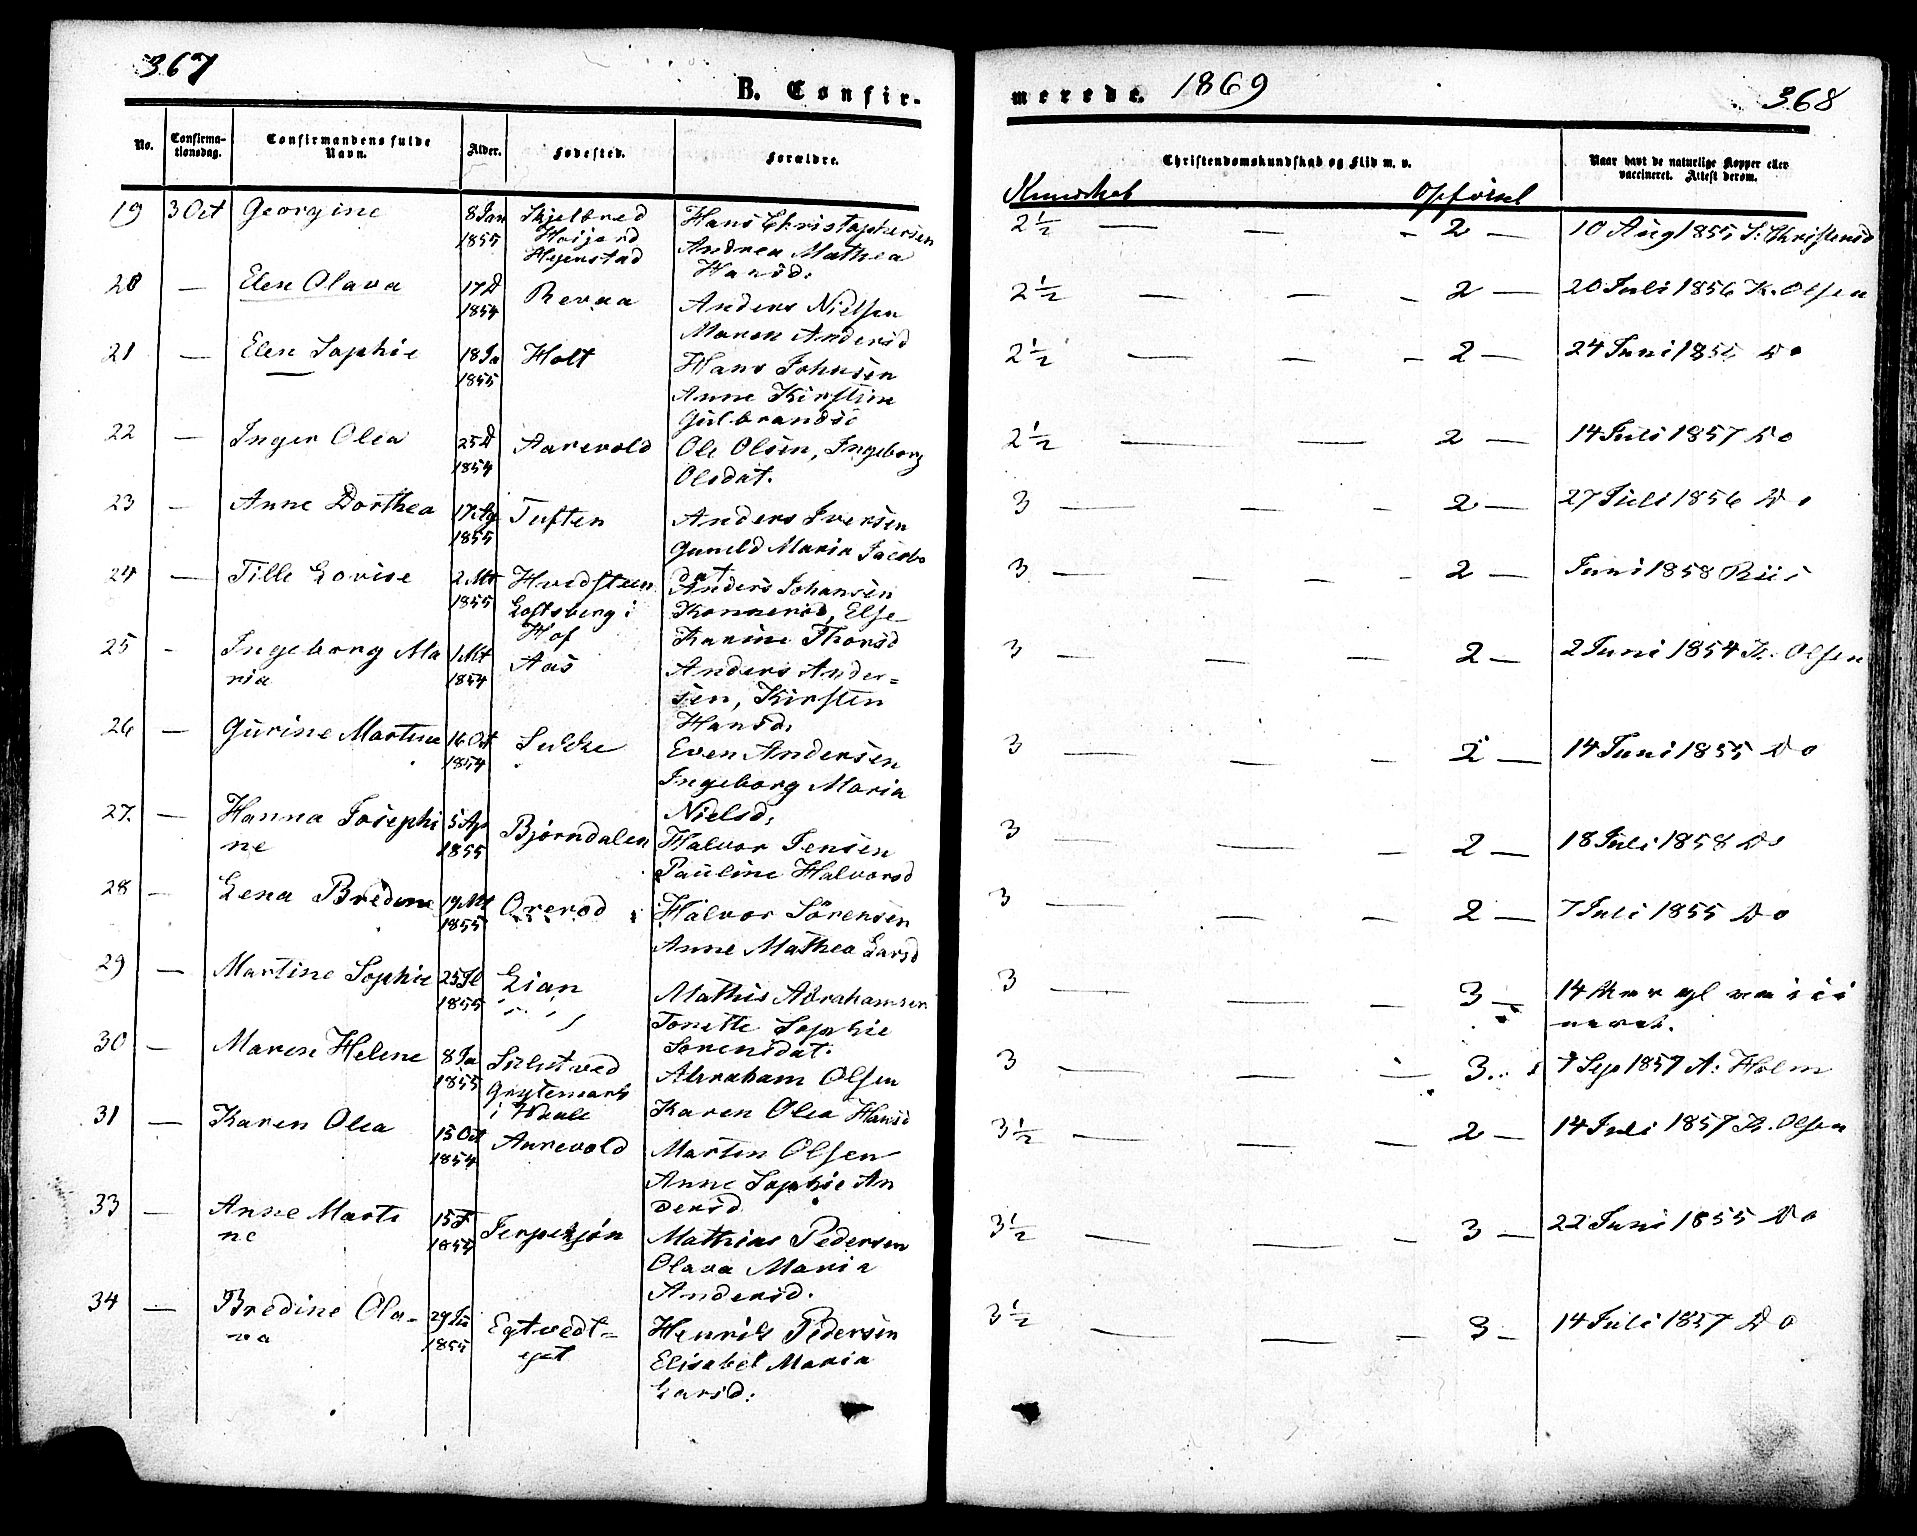 367
B. Confir-
merede. 1869
368
No. Confirma-tionsdag. Confirmandens fulde Navn. Alder. Fødested. Forældre. Christendomskundskab og Flid m. v. Naar havt de naturlige Kopper eller vaccineret. Attest derom.
Kundskab Opførsel
19 3 Oct Georgine 8 Jan Skjelbred Hans Christophersen 2½ — — - 2 — 10 Aug 1855 S: Christensd
1855 Andrea Mathea
Hansd:
20 — Elen Olava 17 D Revaa Anders Nielsen 2½ — — - 2 — 20 Juli 1856 K. Olsen
1854 Maren Andersd
21 — Elen Sophie 18 Ja Holt Hans Johnsen 2½ — — - 2 — 24 Juni 1856 Do
1855 Anne Kirstine
Gulbrandsd
22 — Inger Olea 25 D Aarevold Ole Olsen, Ingeborg 2½ — — 2 — 14 Juli 1857 Do
1854 Olsdat.
23 — Anne Dorthea 17 Ag Tuften Anders Iversen 3 — — — 2 — 27 Juli 1856 Do
1855 Gunild Maria Jacobs
dat
24 — Tille Lovise 2 Mt Hvidsteen Anders Johansen 3 — — - 2 — Juni 1858 Riis
1855 Loftsberg i Konnerød, Else
Hof Karine Thorsd
25 - Ingeborg Ma 1 Mt Aas Anders Ander= 3 — — — 2 — 2 Juni 1854 K. Olsen
ria 1854 sen, Kirsten
Hansd.
26 — Gurine Martine 16 Oct Sukke Even Andersen 3 — — - 2 — 14 Juni 1855 Do
1854 Ingeborg Maria
Nielsd.
27. — Hanna Josephi 5 Ap Bjørndalen Halvor Jensen 3 — — — 2 — 18 Juli 1858 Do
ne 1855 Pauline Halvorsd
28 — Lena Bredine 19 Mt Orerød Halvor Sørensen 3 — — — 2 — 7 Juli 1855 Do
1855 Anne Mathea Larsd
29 — Martine Sophie 25 Jl Lian Mathis Abrahamsen 3 — — 3 — 14
1855 Tonette Sophie neret.
Sørensdat.
30 — Maren Helene 8 Ja Abraham Olsen 3 — — 3 7 Sep 1857 A: Holm
1855 Karen Olea Hansd
31 — Karen Olea 15 Oct Aarevold Morten Olsen 3½ — — — 2 — 14 Juli 1857 K. Olsen
1854 Anne Sophie An
dersd
33 — Anne Marti 15 F Mathias Pedersen 3½ — — - 3 — 22 Juni 1855 Do
ne Olava Maria
Andersd.
34 — Bredine Ola- Egtvedt= Henrik Pedersen 3½ — — - 3 - 14 Juli 1857 Do
va 1855 eget Elisabet Maria
Larsd.